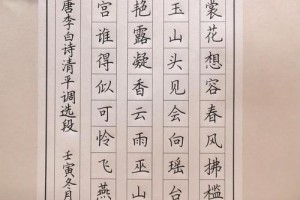 裳花想容春风拂槛
玉山头见会向瑶台
艳露凝香云雨巫山
宫谁得似可怜飞燕
唐李白诗清平调选段 壬寅冬月